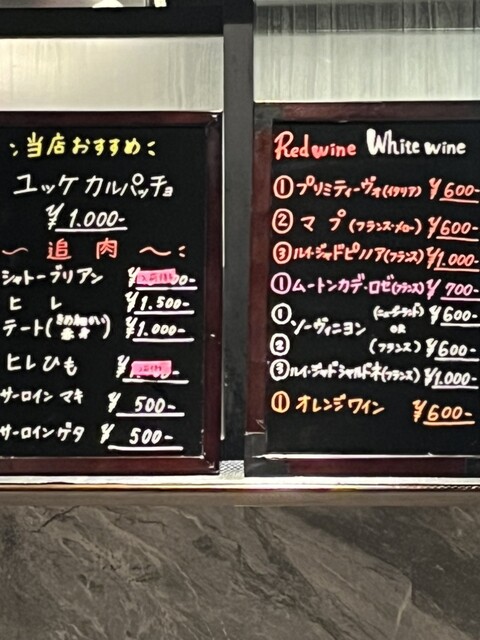 当店おすすめ
ユッケ カルパッチョ
¥1.000-
〜 追 肉 〜
シャトーブリアン
ヒ レ ¥1.500-
テート(きめ細かい赤身) ¥1.000-
ヒレひも ¥
サーロイン マキ ¥500-
サーロイン ゲタ ¥500-
Red wine White wine
① プリミティーヴォ(イタリア) ¥600-
② マ プ (フランス・メロー) ¥600-
③ ルイ・ジャドピノノア(フランス) ¥1.000-
① ムートンカデ・ロゼ(フランス) ¥700-
① (ニュージーランド) ¥600-
ソーヴィニヨン OR
② (フランス) ¥600-
③ ルイ・ジャドシャルドネ(フランス) ¥1.000-
① オレンジワイン ¥600-